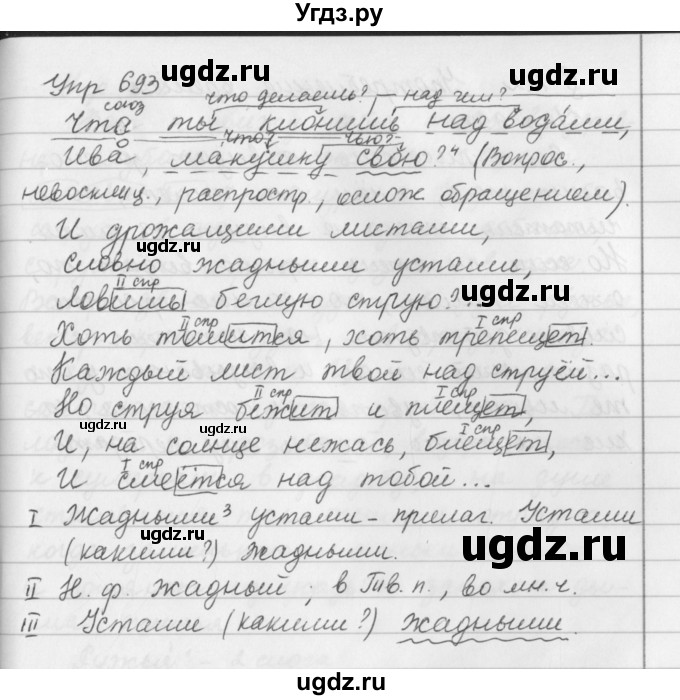 Угдз.ру
Упр 693
союз что делаешь? над чем?
Что ты клонишь над водами,
что? чью?
Ива, макушку свою?⁴ (Вопрос.,
невосклиц., распростр., ослож обращением).
И дрожащими листами,
Словно жадными устами,
II спр
Ловишь беглую струю?..
II спр I спр
Хоть томится, хоть трепещет
Каждый лист твой над струёй...
II спр I спр
Но струя бежит и плещет,
I спр
И, на солнце нежась, блещет,
I спр
И смеётся над тобой...
I Жадными³ устами - прилаг. Устами
(какими?) жадными.
II Н. ф. жадный, в Тв. п., во мн. ч.
III Устами (какими?) жадными.
ugdz.ru
ugdz.ru
ugdz.ru
ugdz.ru
ugdz.ru
ugdz.ru
ugdz.ru
ugdz.ru
ugdz.ru
ugdz.ru
ugdz.ru
ugdz.ru
ugdz.ru